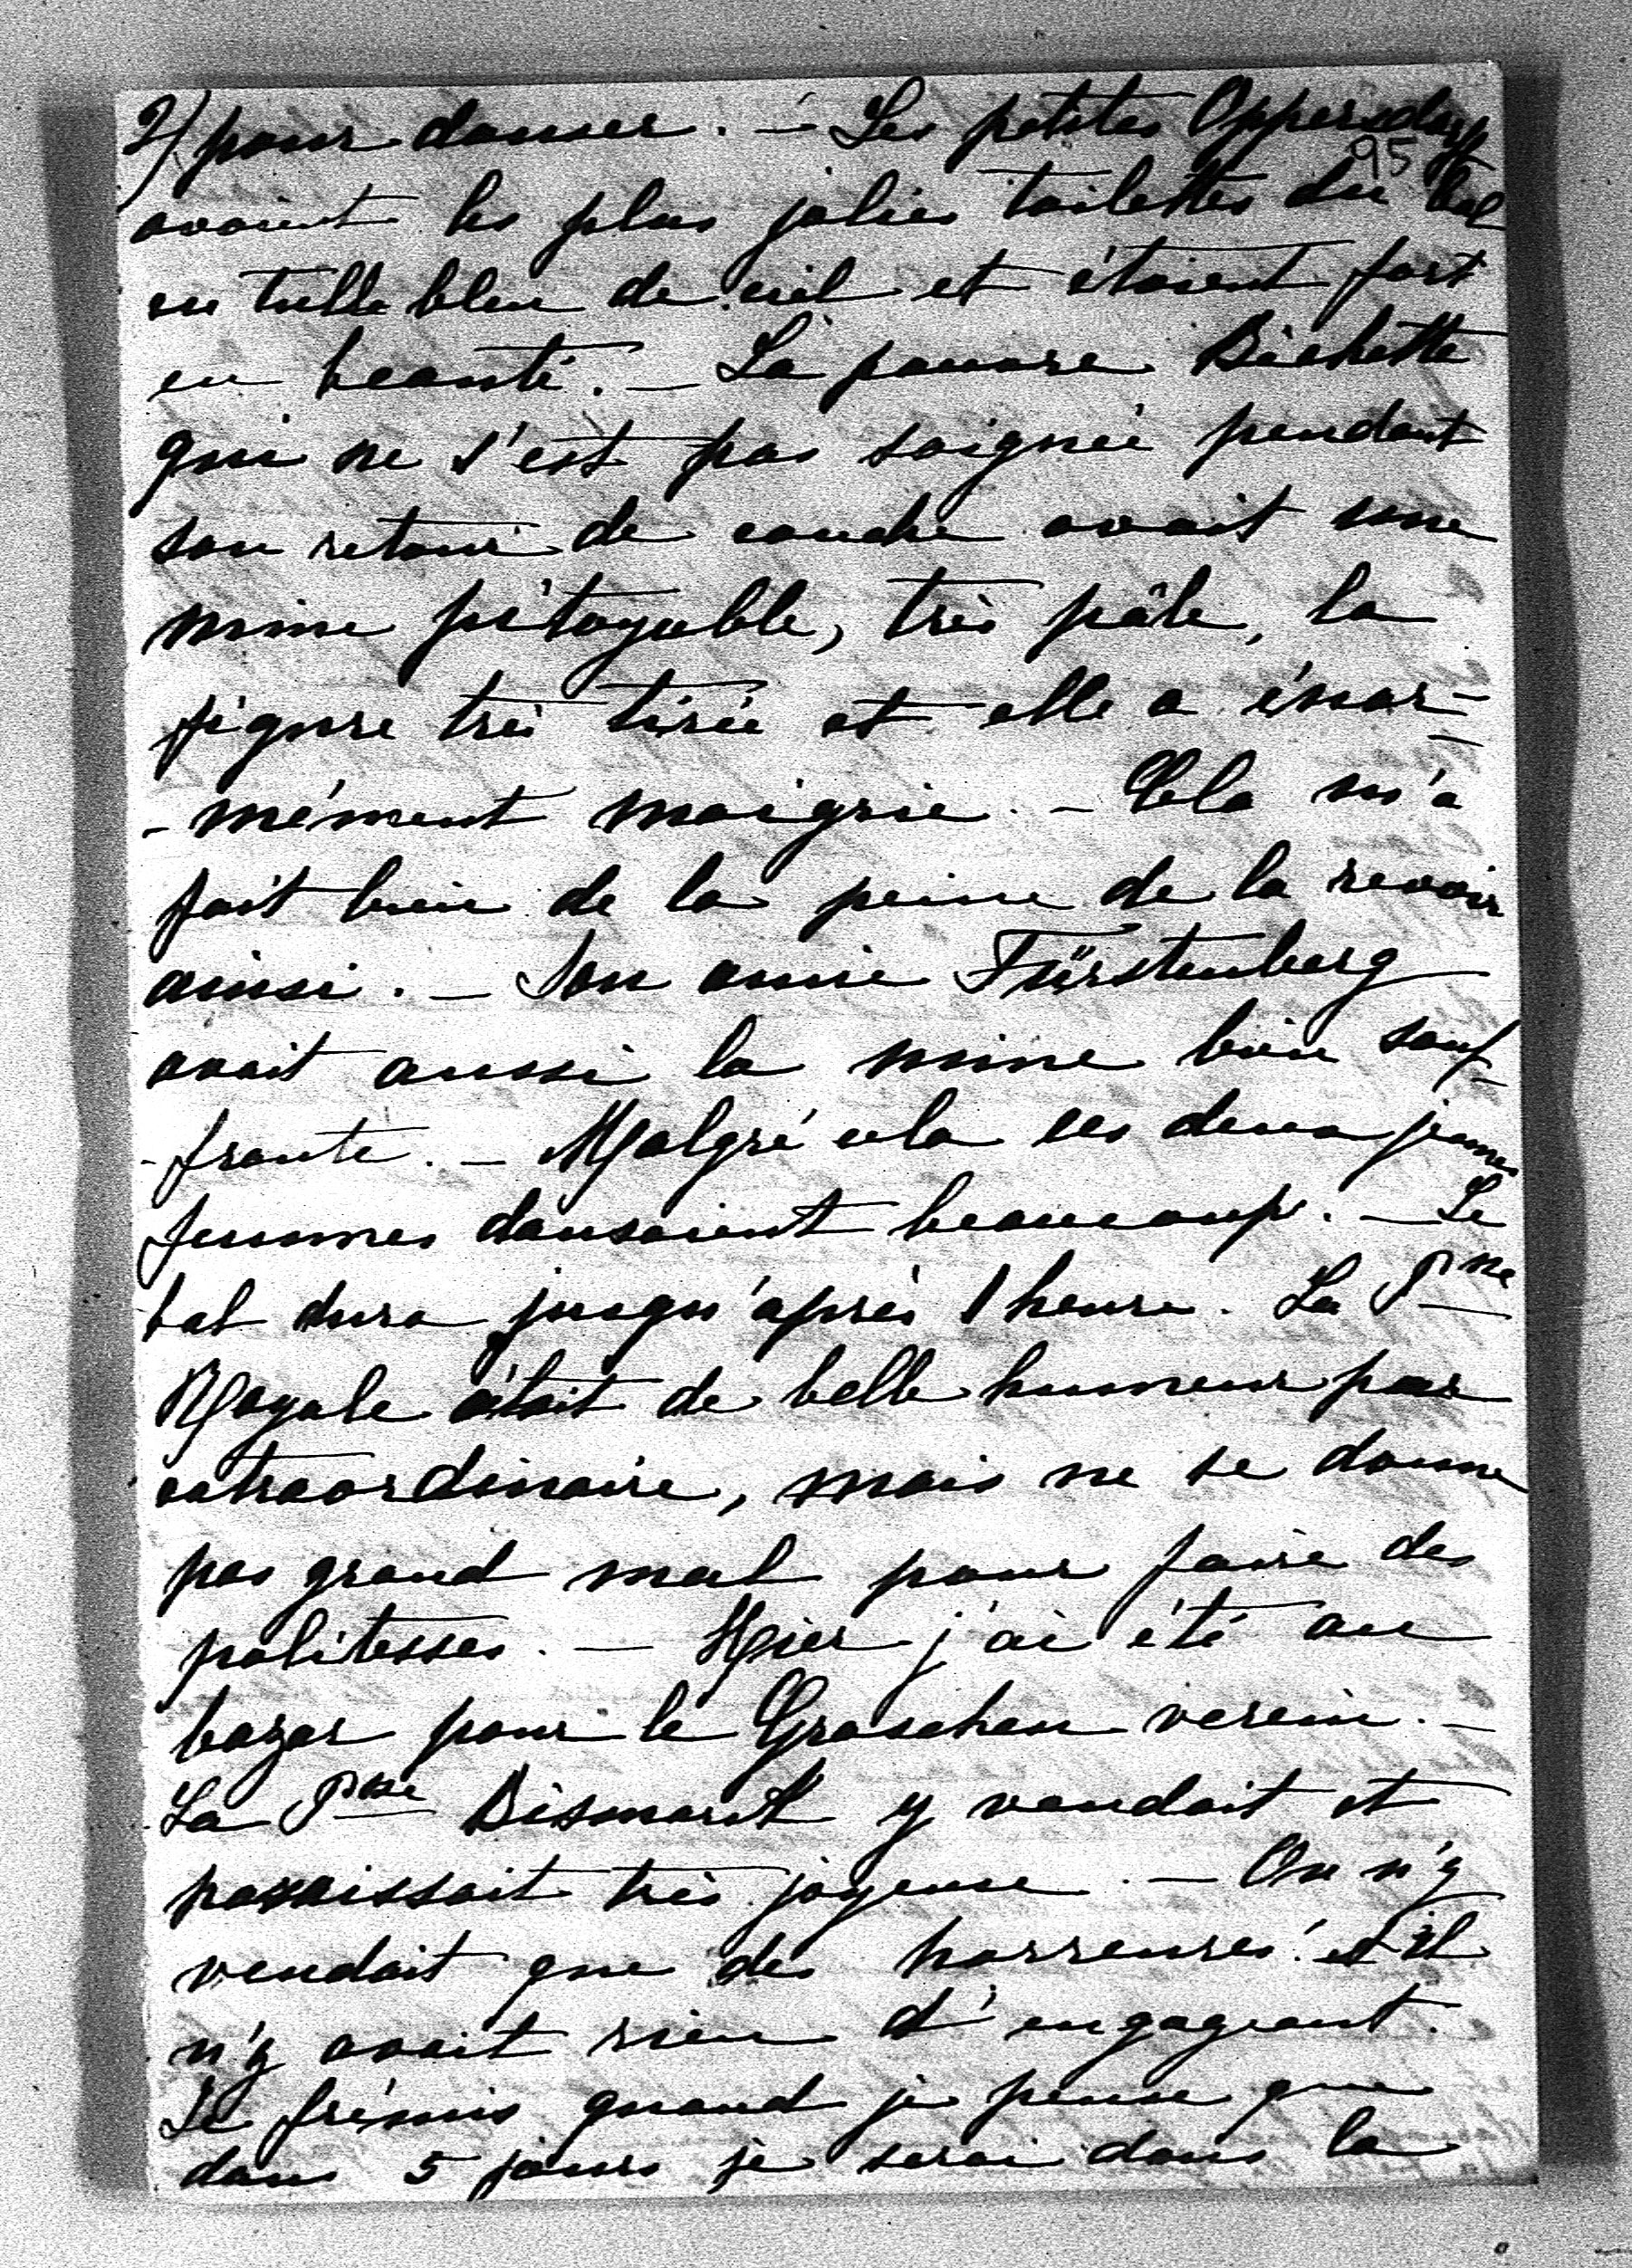 2) pour danser. – Les petites Oppersdorf
95
avaient les plus jolies toilettes du bal
en tulle bleu de ciel et étaient fort
en beauté. – La pauvre Bichette
qui ne s'est pas soignée pendant
son retour de couche avait une
mine pitoyable, très pâle, la
figure très tirée et elle a énor-
-mément maigrie. – Cela m'a
fait bien de la peine de la revoir
ainsi. – Son amie Fürstenberg
avait aussi la mine bien souf-
-frante. – Malgré cela ces deux jeunes
femmes dansaient beaucoup. – Le
bal dura jusqu'après 1 heure. La Psse
Royale était de belle humeur par
extraordinaire, mais ne se donne
pas grand mal pour faire des
politesses. – Hier j'ai été au
bazar pour le Groschen verein. –
La Psse Bismarck y vendait et
paraissait très joyeuse. – On n'y
vendait que des horreures et il
n'y avait rien d'engageant.
Je frémis quand je pense que
dans 5 jours je serai dans la